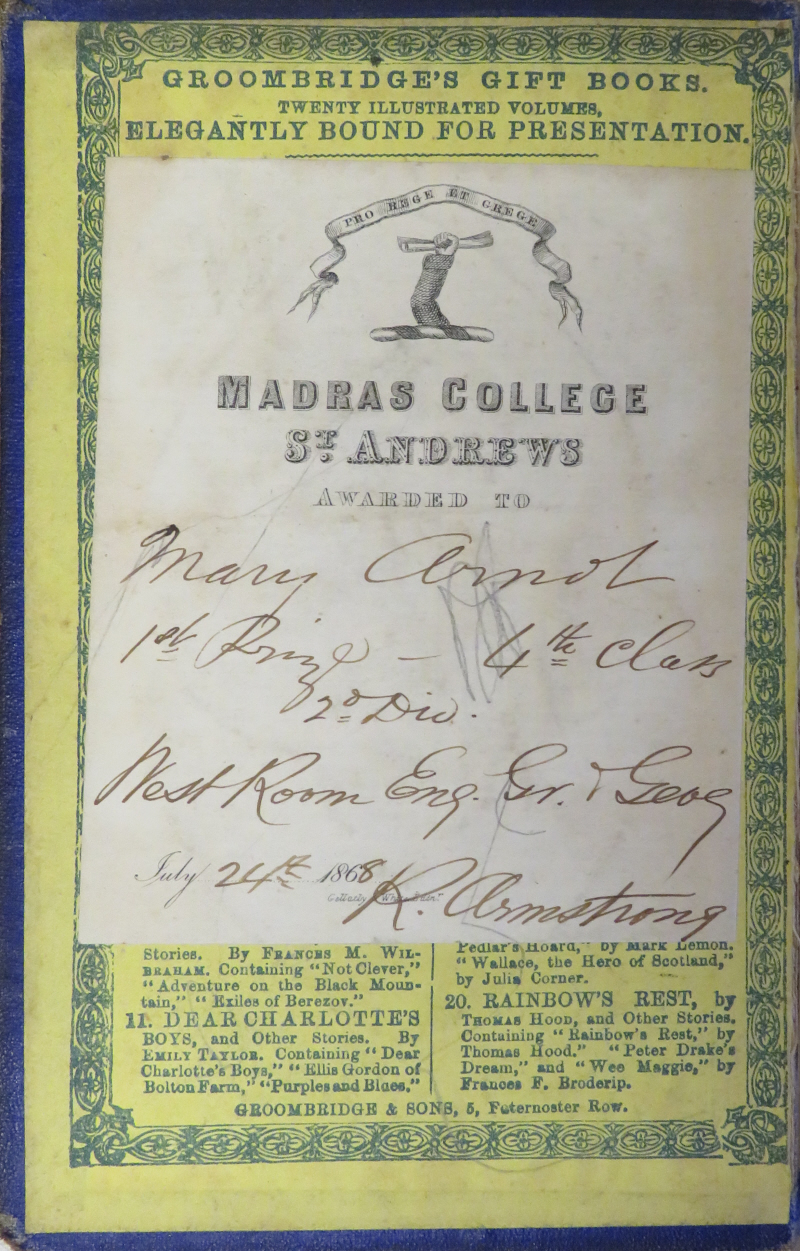 GROOMBRIDGE'S GIFT BOOKS.
TWENTY ILLUSTRATED VOLUMES,
ELEGANTLY BOUND FOR PRESENTATION.
PRO REGE ET GREGE
MADRAS COLLEGE
ST. ANDREWS
AWARDED TO
Mary Arnot
1st Prize – 4th Class
2d Div.
West Room Eng. Gr. & Geog
July 24th 1868
R. Armstrong
Stories. By FRANCES M. WIL-
BRAHAM. Containing "Not Clever,"
"Adventure on the Black Moun-
tain," "Exiles of Berezov."
11. DEAR CHARLOTTE'S
BOYS, and Other Stories. By
EMILY TAYLOR. Containing "Dear
Charlotte's Boys," "Ellis Gordon of
Bolton Farm," "Purples and Blues."
Pedlar's Hoard," by Mark Lemon.
"Wallace, the Hero of Scotland,"
by Julia Corner.
20. RAINBOW'S REST, by
THOMAS HOOD, and Other Stories.
Containing "Rainbow's Rest," by
Thomas Hood." "Peter Drake's
Dream," and "Wee Maggie," by
Frances F. Broderip.
GROOMBRIDGE & SONS, 5, Paternoster Row.